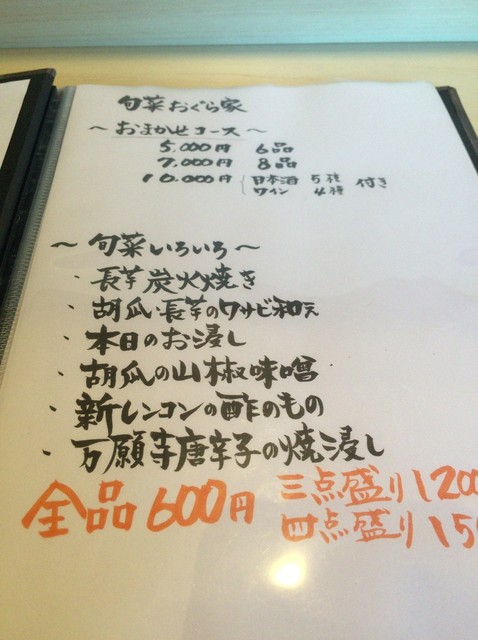 旬菜おぐら家
～おまかせコース～
5,000円 6品
7,000円 8品
10,000円 日本酒 5種 ワイン 4種 付き
～旬菜いろいろ～
・長芋炭火焼き
・胡瓜・長芋のワサビ和え
・本日のお浸し
・胡瓜の山椒味噌
・新レンコンの酢のもの
・万願寺唐辛子の焼浸し
全品600円
三点盛り 1200
四点盛り 150